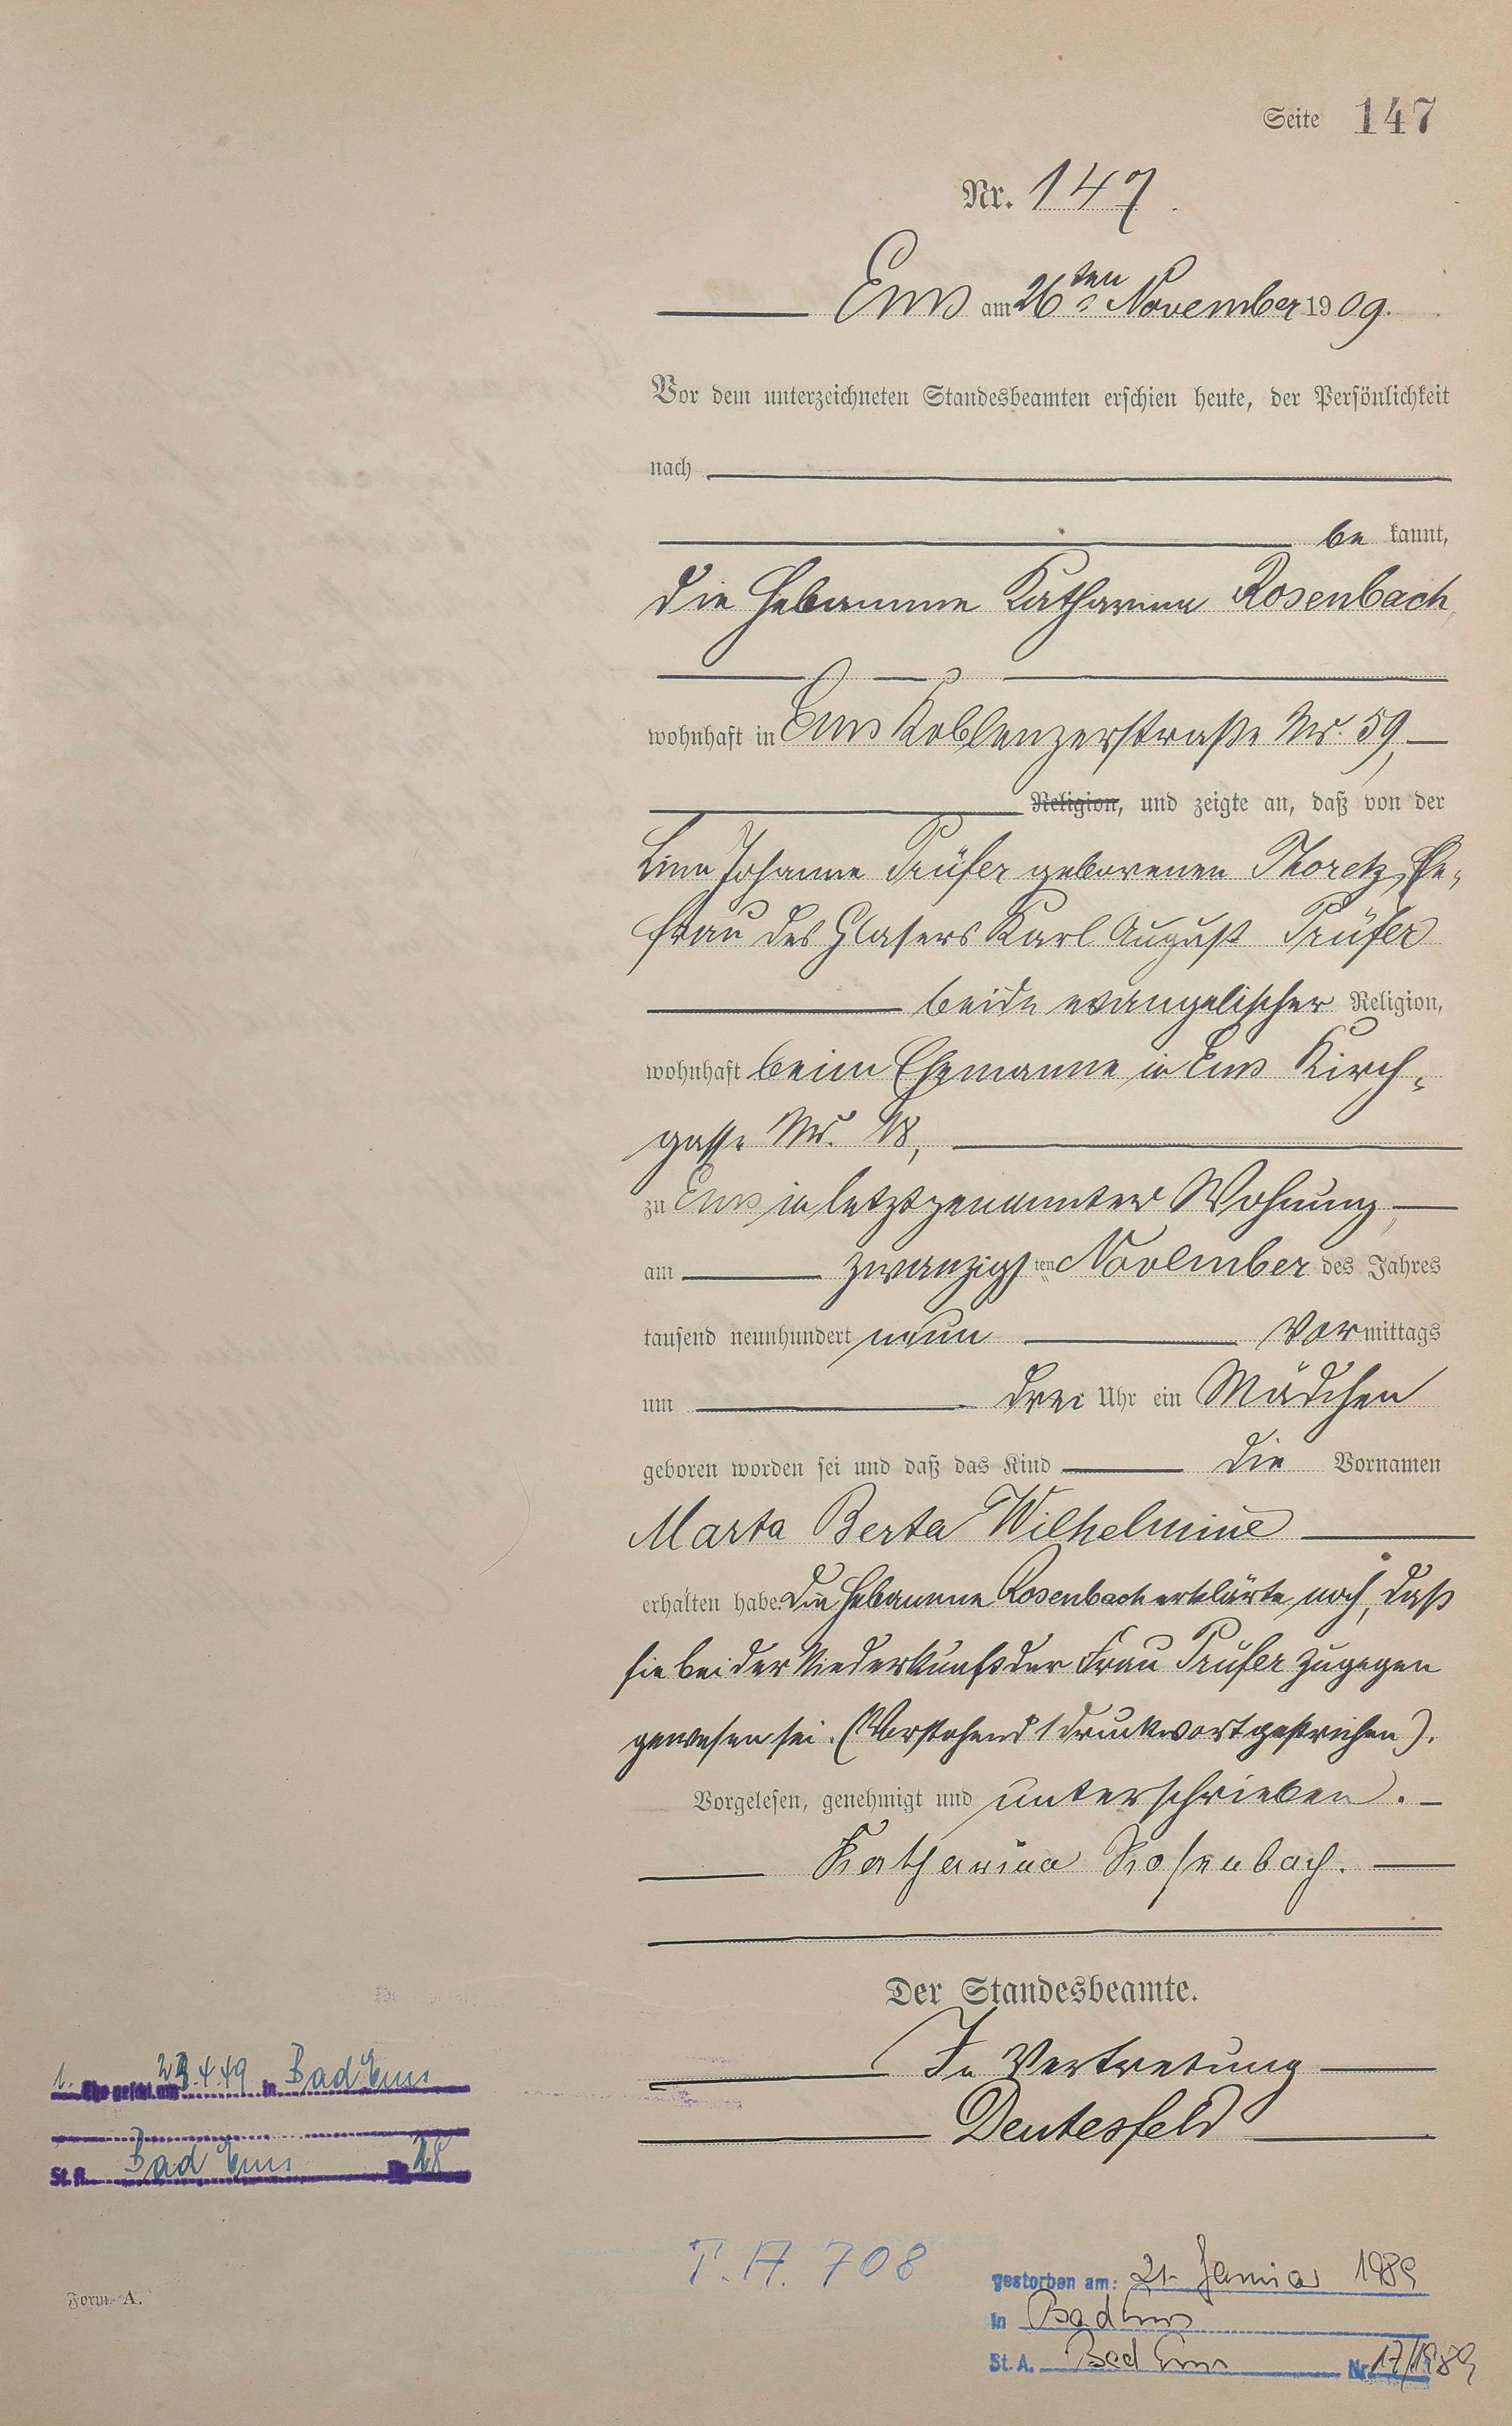 Seite 147
Nr. 147.
Ems am 26ten November 1909.
Vor dem unterzeichneten Standesbeamten erschien heute, der Persönlichkeit
nach
be kannt,
die Hebamme Katharina Rosenbach,
wohnhaft in Ems Koblenzerstraße Nr. 59,
Religion, und zeigte an, daß von der
Lina Johanne Prüfer geborenen Thoretz, Ehe-
frau des Glasers Karl August Prüfer
beide evangelischer Religion,
wohnhaft beim Ehemanne in Ems Kirch-
gasse Nr. 18,
zu Ems in letztgenannter Wohnung,
am zwanzigsten November des Jahres
tausend neunhundert neun Vormittags
um drei Uhr ein Mädchen
geboren worden sei und daß das Kind die Vornamen
Marta Berta Wilhelmine
erhalten habe. Die Hebamme Rosenbach erklärte noch, daß
sie bei der Niederkunft der Frau Prüfer zugegen
gewesen sei. (Vorstehend 1 Druckwort gestrichen).
Vorgelesen, genehmigt und unterschrieben.
Katharina Rosenbach.
Der Standesbeamte.
In Vertretung
Deutesfeld
1. Ehe geschl. am 23.4.49 in Bad Ems
St. A. Bad Ems Nr. 28
T. A. 708
gestorben am: 21. Januar 1989
in Bad Ems
St. A. Bad Ems Nr. 17/1989
Form. A.